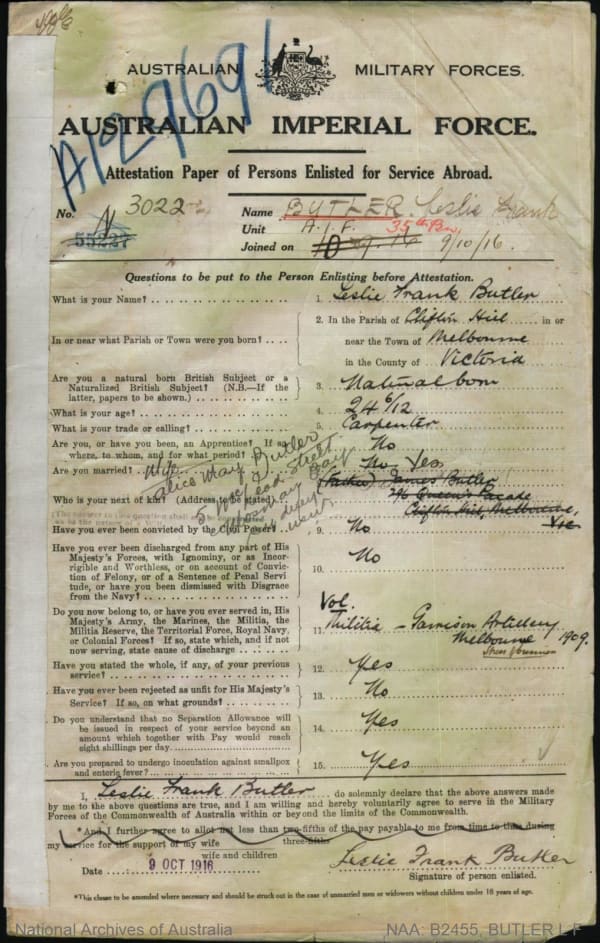 A12969
AUSTRALIAN MILITARY FORCES.
AUSTRALIAN IMPERIAL FORCE.
Attestation Paper of Persons Enlisted for Service Abroad.
No. 3022
55227
Name BUTLER. Leslie Frank
Unit A.I.F. 35th Bn,
Joined on 10.9.16 9/10/16.
Questions to be put to the Person Enlisting before Attestation.
What is your Name? 1. Leslie Frank Butler
In or near what Parish or Town were you born? 2. In the Parish of Clifton Hill in or
near the Town of Melbourne
in the County of Victoria
Are you a natural born British Subject or a
Naturalized British Subject? (N.B.—If the
latter, papers to be shown.) 3. Natural born
What is your age? 4. 24 6/12
What is your trade or calling? 5. Carpenter
Are you, or have you been, an Apprentice? If so,
where, to whom, and for what period? No
Are you married? No Yes
Wife
Alice May Butler
Street
Mosman Bay
Who is your next of kin? (Address to be stated) (Father) James Butler
246 Queen's Parade
Clifton Hill, Melbourne,
Vic
Have you ever been convicted by the Civil Power? 9. No
Have you ever been discharged from any part of His
Majesty's Forces, with Ignominy, or as Incor-
rigible and Worthless, or on account of Convic-
tion of Felony, or of a Sentence of Penal Servi
tude, or have you been dismissed with Disgrace
from the Navy? 10. No
Do you now belong to, or have you ever served in, His
Majesty's Army, the Marines, the Militia, the
Militia Reserve, the Territorial Force, Royal Navy,
or Colonial Forces? If so, state which, and if not
now serving, state cause of discharge 11. Vol.
Militia – Garrison Artillery
Melbourne 1909.
Have you stated the whole, if any, of your previous
service? 12. Yes
Have you ever been rejected as unfit for His Majesty's
Service? If so, on what grounds? 13. No
Do you understand that no Separation Allowance will
be issued in respect of your service beyond an
amount which together with Pay would reach
eight shillings per day. 14. Yes
Are you prepared to undergo inoculation against smallpox
and enteric fever? 15. Yes
I, Leslie Frank Butler do solemnly declare that the above answers made
by me to the above questions are true, and I am willing and hereby voluntarily agree to serve in the Military
Forces of the Commonwealth of Australia within or beyond the limits of the Commonwealth.
*And I further agree to allot not less than two-fifths of the pay payable to me from time to time during
three-fifths
my service for the support of my wife
wife and children
Date 9 OCT 1916
Leslie Frank Butler
Signature of person enlisted.
*This clause to be amended where necessary and should be struck out in the case of unmarried men or widowers without children under 18 years of age.
National Archives of Australia NAA: B2455, BUTLER L F